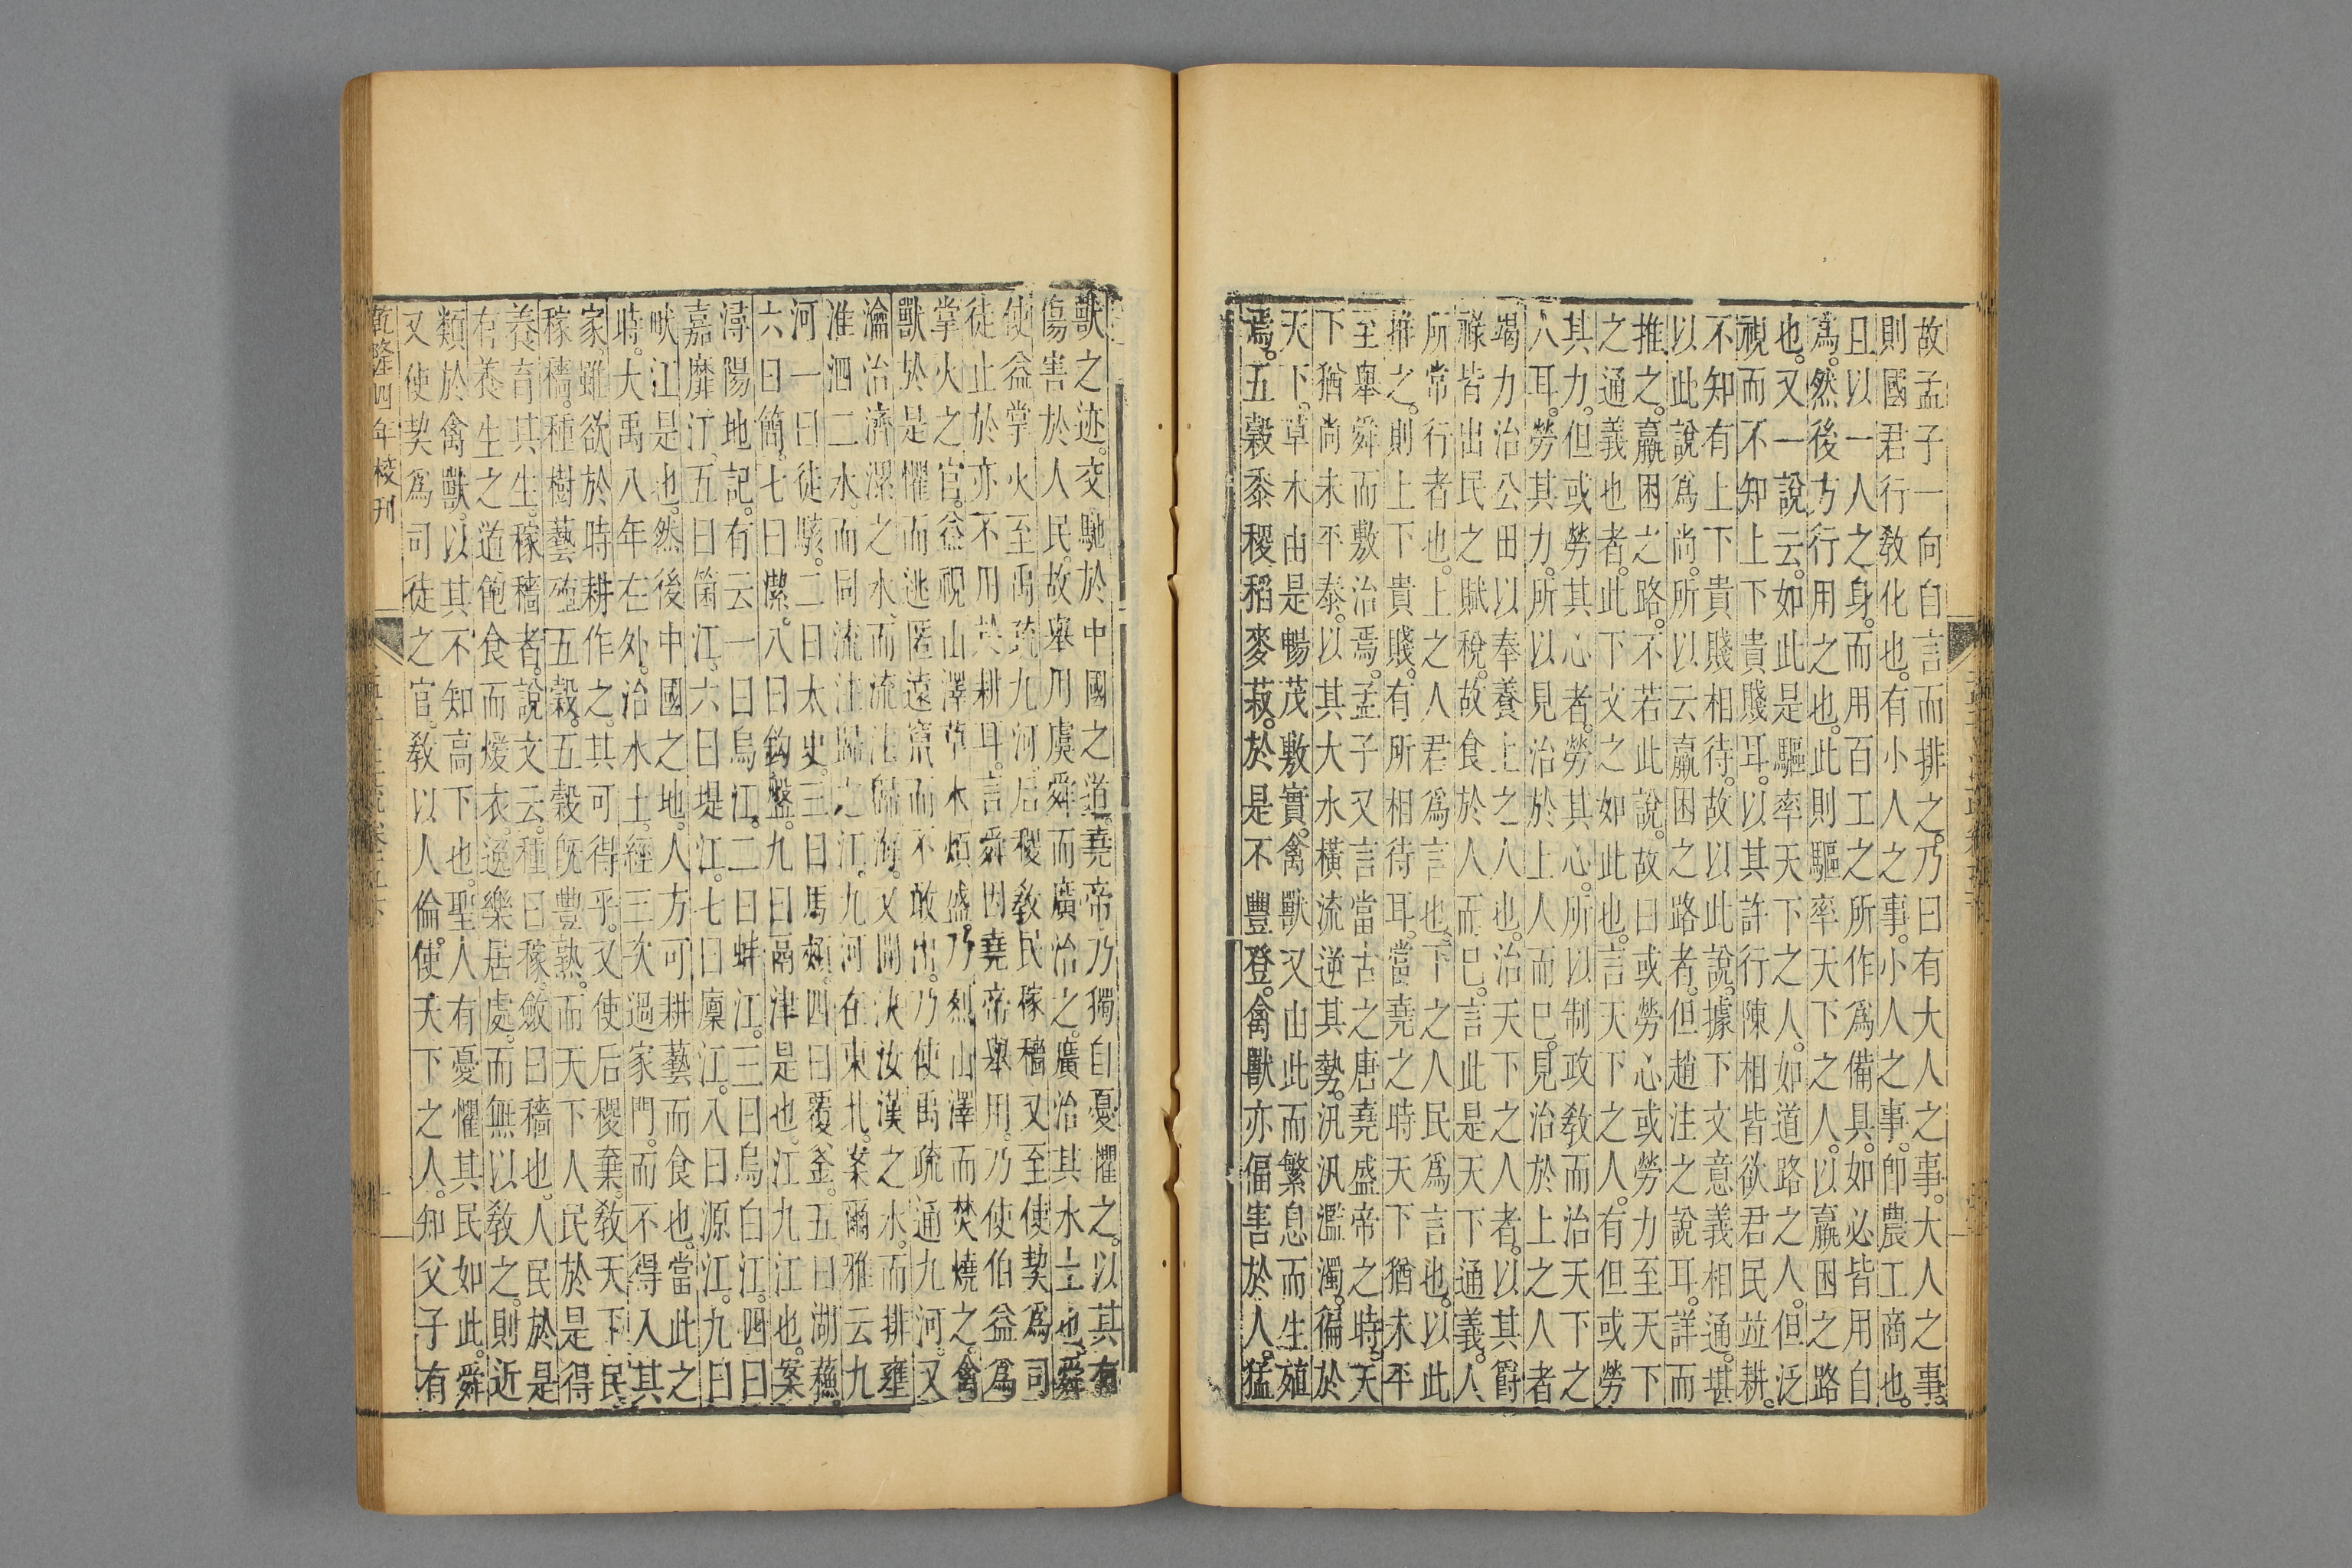 故孟子一向自言而排之。乃曰有大人之事。大人之事。
則國君行敎化也。有小人之事。小人之事。卽農工商也。
且以一人之身。而用百工之所作爲備具。如必皆用自
爲。然後乃行用之也。此則驅率天下之人。以羸困之路
也。又一說云。如此是驅率天下之人。如道路之人。但泛
視而不知上下貴賤耳。以其許行陳相皆欲君民竝耕。
不知有上下貴賤相待。故以此說。據下文意義相通。堪
以此說爲尚。所以云羸困之路者。但趙注之說耳。詳而
推之。羸困之路。不若此說。故曰或勞心或勞力至天下
之通義也者。此下文之如此也。言天下之人。有但或勞
其力。但或勞其心者。勞其心。所以制政敎而治天下之
人耳。勞其力。所以見治於上人而已。見治於上之人者
竭力治公田以奉養上之人也。治天下之人者。以其爵
祿皆出民之賦稅。故食於人而已。言此是天下通義。人
所常行者也。上之人君爲言也。下之人民爲言也。以此
推之。則上下貴賤。有所相待耳。當堯之時天下猶未平
至舉舜而敷治焉。孟子又言當古之唐堯盛帝之時。天
下猶尚未平泰。以其大水橫流逆其勢。汎汎濫濁。徧於
天下。草木由是暢茂敷實。禽獸又由此而繁息而生殖
焉。五穀黍稷稻麥菽。於是不豐登。禽獸亦偪害於人。猛
獸之迹。交馳於中國之道。堯帝乃獨自憂懼之。以其有
傷害於人民。故舉用虞舜而廣治之。廣治其水土也。舜
使益掌火至禹疏九河。后稷敎民稼穡又至使契爲司
徒止於亦不用於耕耳。言舜因堯帝舉用。乃使伯益爲
掌火之官。益視山澤草木熾盛。乃烈山澤而焚燒之。禽
獸於是懼而逃匿遠竄而不敢出。乃使禹疏通九河。又
瀹治濟漯之水。而流注歸海。又開決汝漢之水。而排壅
淮泗二水。而同流注歸之江。九河在東北。案爾雅云九
河一曰徒駭。二曰太史。三曰馬頰。四曰覆釜。五曰湖蘇。
六曰簡。七曰潔。八曰鉤盤。九曰鬲津是也。江九江也。案
潯陽地記。有云一曰烏江。二曰蚌江。三曰烏白江。四曰
嘉靡江。五曰箘江。六曰堤江。七曰廩江。八曰源江。九曰
畎江是也。然後中國之地。人方可耕藝而食也。當此之
時。大禹八年在外。治水土。經三次過家門。而不得入其
家雖欲於時耕作之。其可得乎。又使后稷棄。敎天下民
稼穡。種樹藝殖五穀。五穀旣豐熟。而天下人民於是得
養育其生。稼穡者。說文云。種曰稼。斂曰穡也。人民於是
有養生之道飽食而煖衣。逸樂居處。而無以敎之。則近
類於禽獸。以其不知高下也。聖人有憂懼其民如此。舜
又使契爲司徒之官。敎以人倫。使天下之人。知父子有
乾隆四年校刊